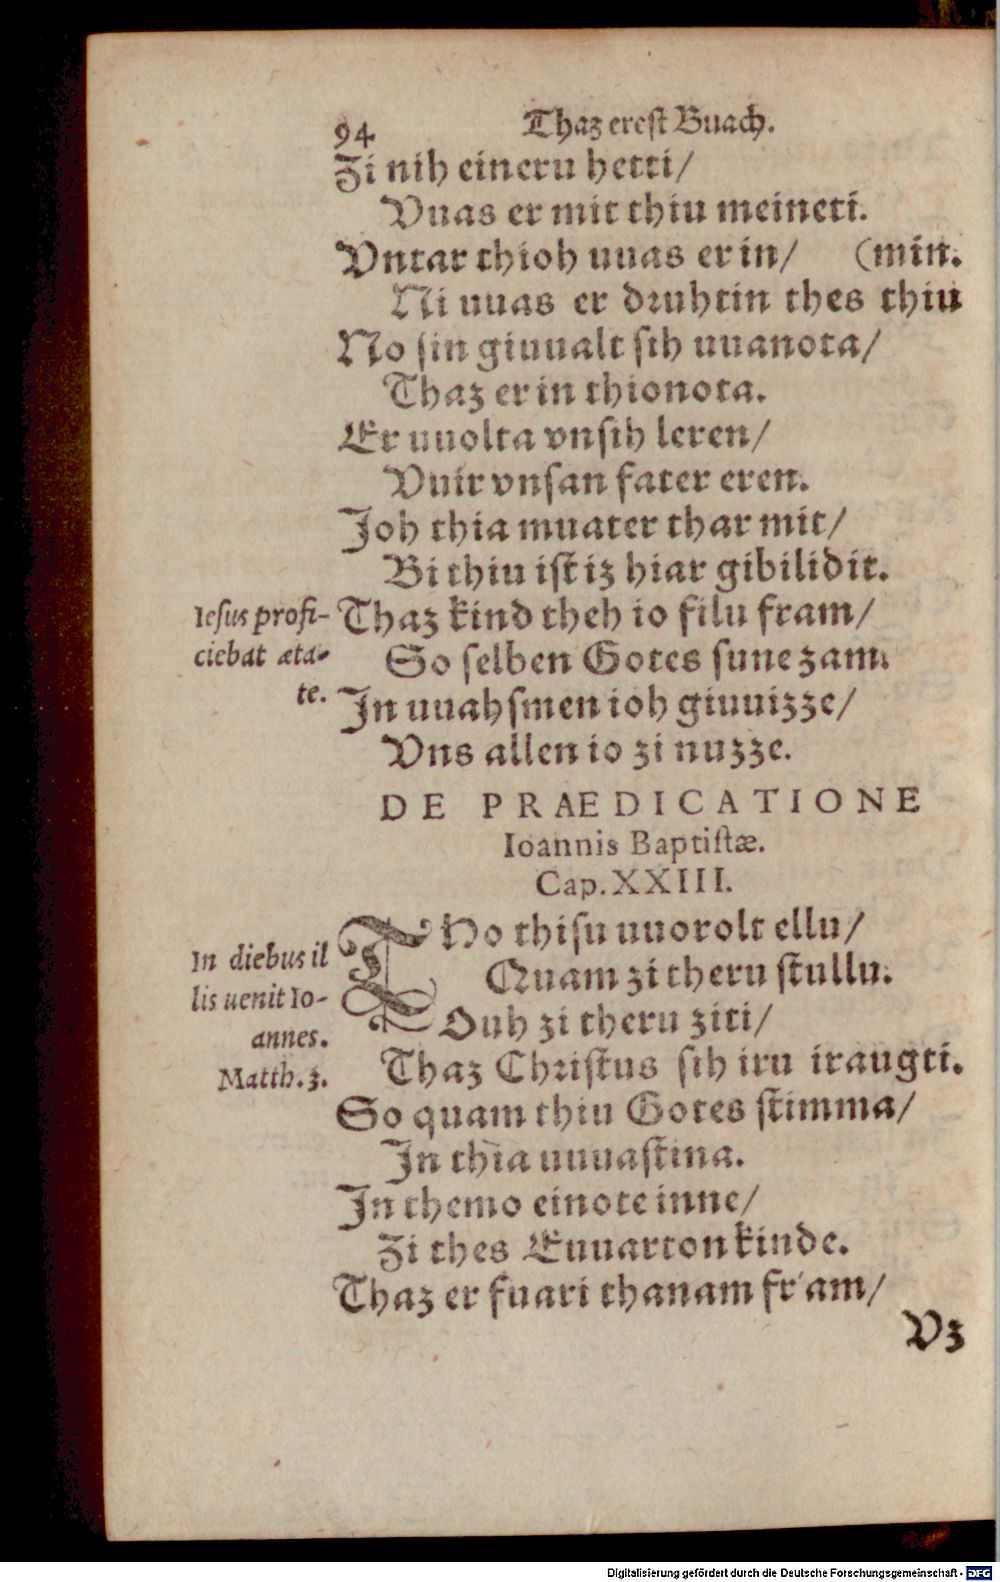 94 Thaz erest Buach.
Zi nih eineru hetti/
Vuas er mit thiu meineti.
Vntar thioh uuas er in/ (min.
Ni uuas er druhtin thes thiu
No ſin giuualt ſih uuanota/
Thaz er in thionota.
Er uuolta vnſih leren/
Vuir vnſan fater eren.
Joh thia muater thar mit/
Bi thiu iſt iz hiar gibilidit.
Ieſus profi-
ciebat æta-
te.
Thaz kind theh io filu fram/
So ſelben Gotes ſune zam.
In uuahſmen ioh giuuizze/
Vns allen io zi nuzze.
DE PRÆDICATIONE
Ioannis Baptiſtæ.
Cap. XXIII.
In diebus il
lis uenit Io-
annes.
Matth. 3.
THo thiſu uuorolt ellu/
Quam zi theru ſtullu.
Ouh zi theru ziti/
Thaz Chriſtus ſih iru iraugti.
So quam thiu Gotes ſtimma/
In thia uuuaſtina.
In themo einote inne/
Zi thes Euuarton kinde.
Thaz er fuari thanam fram/
Vz
Digitalisierung gefördert durch die Deutsche Forschungsgemeinschaft - DFG